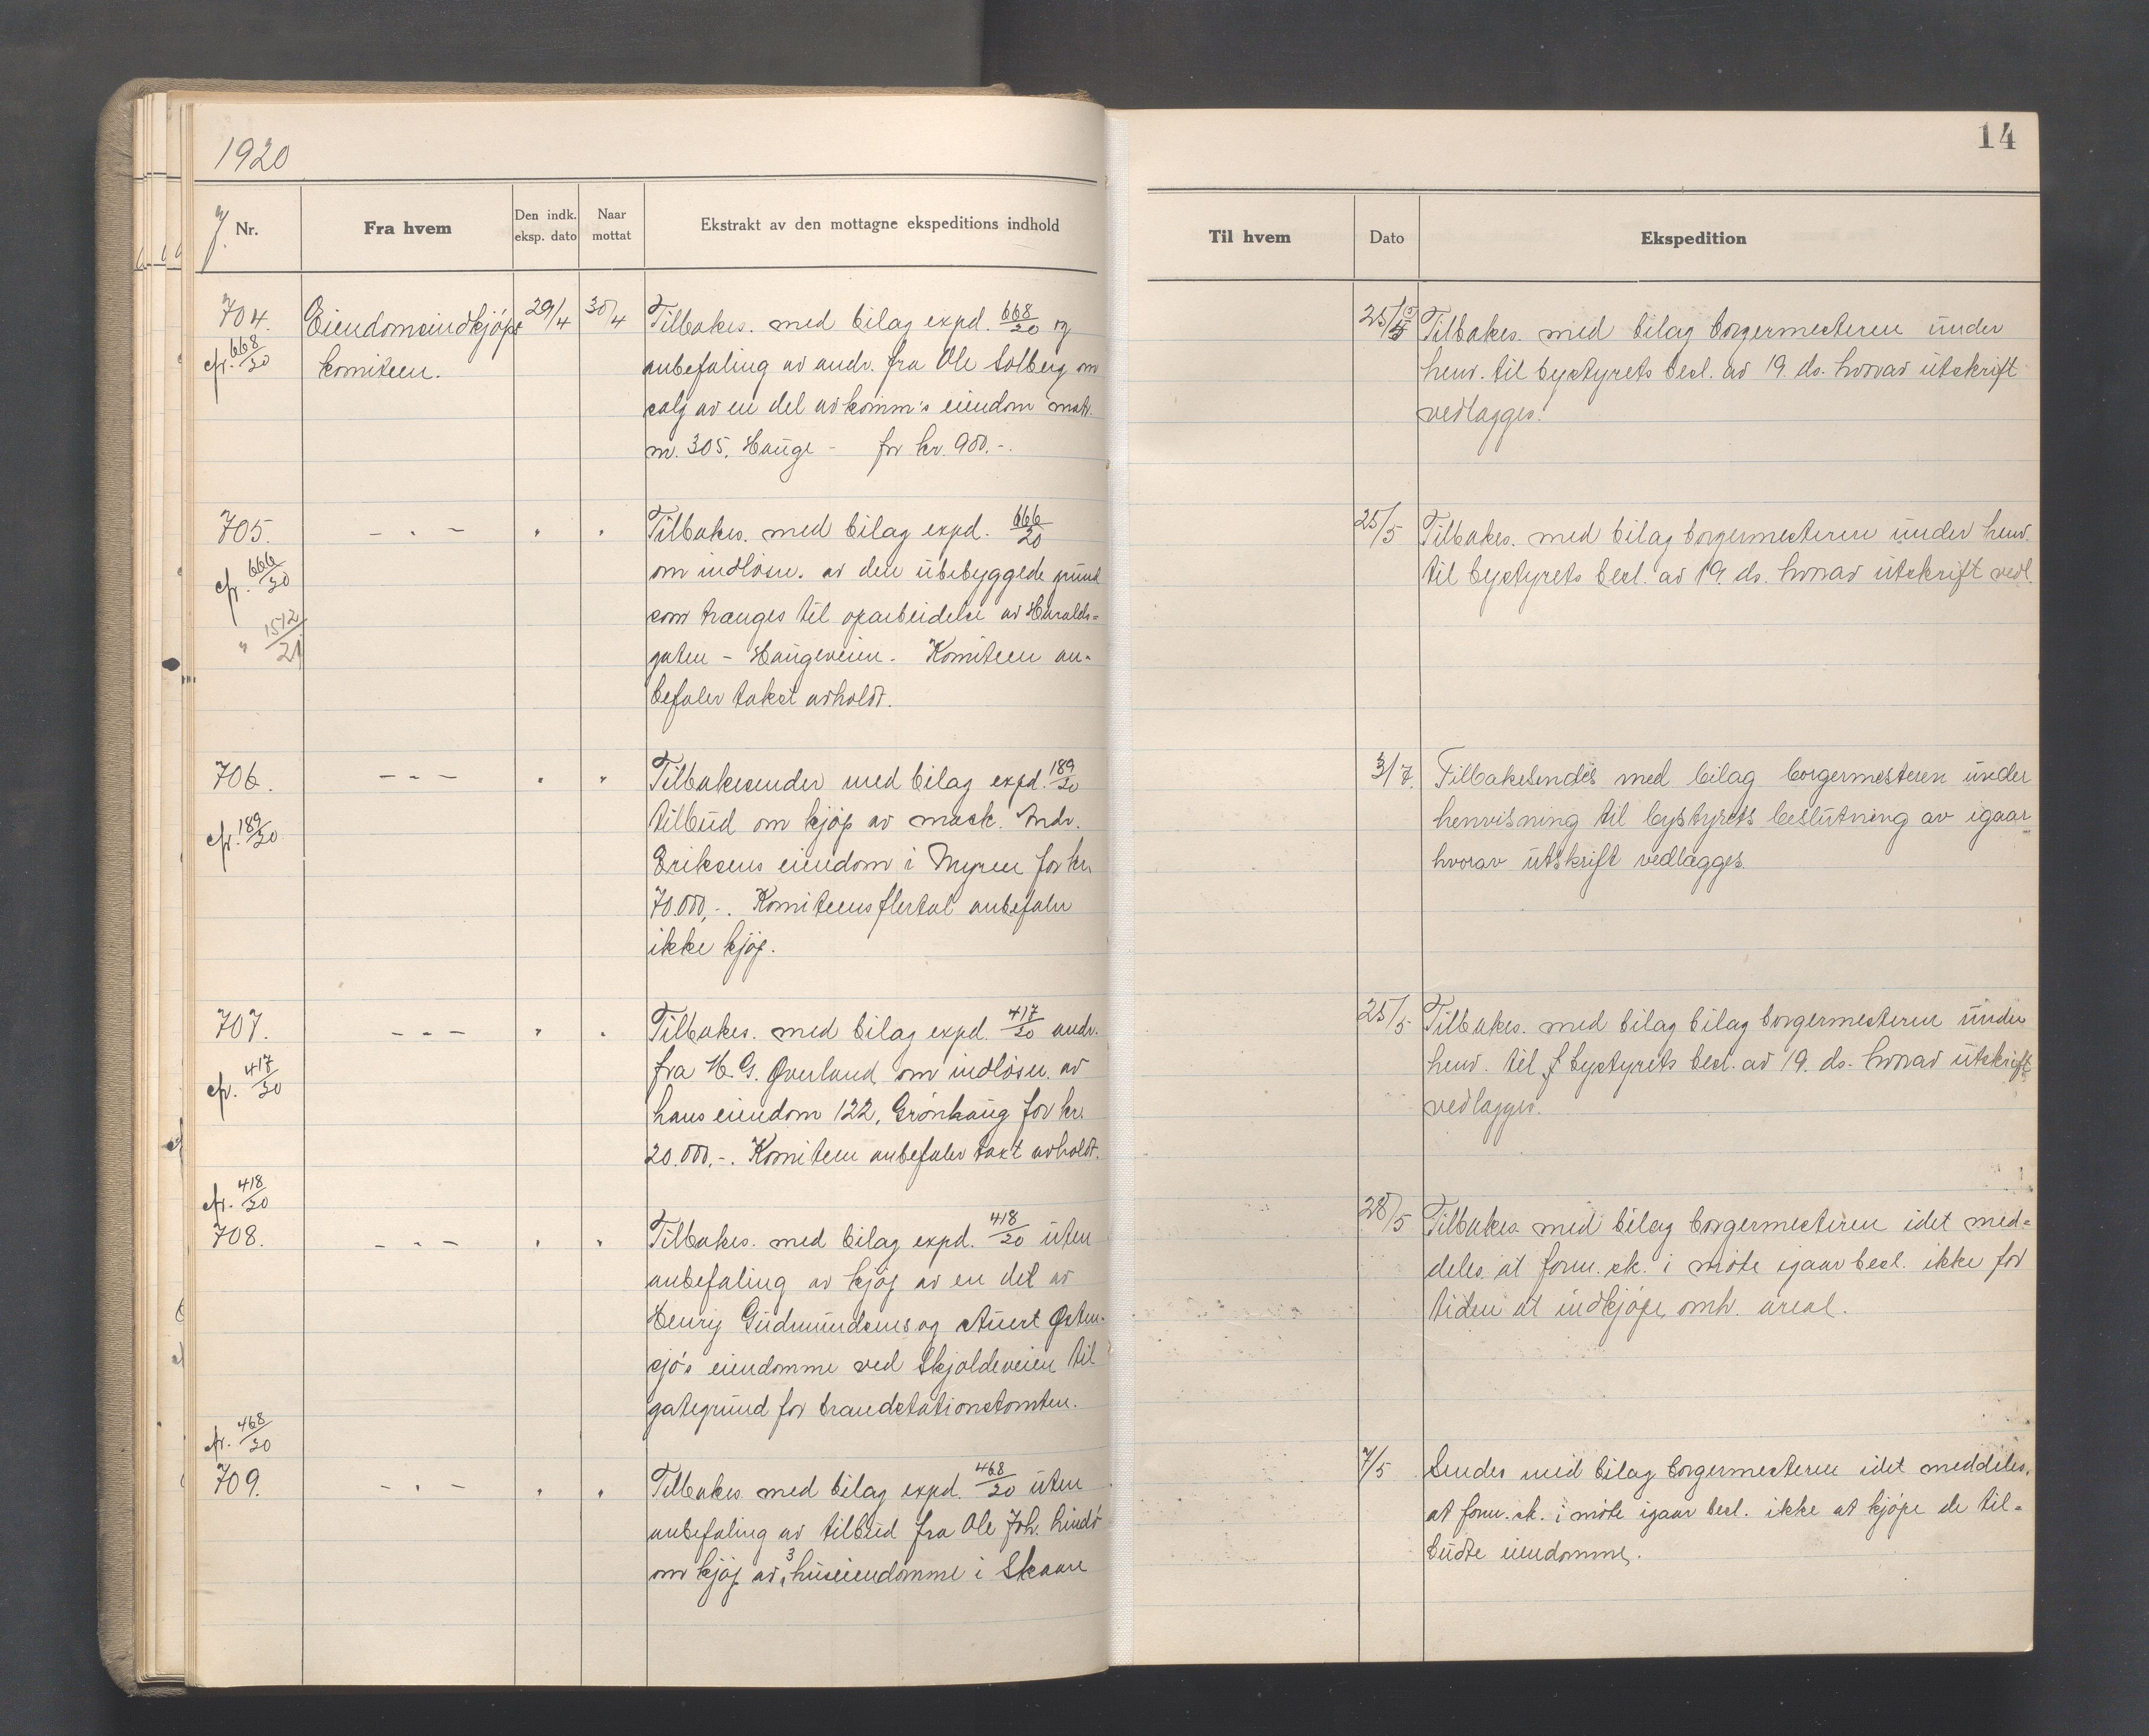 1920
14
J. Nr.
Fra hvem
Den indk. eksp. dato
Naar mottat
Ekstrakt av den mottagne ekspeditions indhold
Til hvem
Dato
Ekspedition
704.
cfr. 668/20
Eiendomsindkjöps
komiteen.
29/4
30/4
Tilbakes. med bilag expd. 668/20 og
anbefaling av andr. fra Ole Solberg om
salg av en del av komm's eiendom matr.
nr. 305, Hauge - for kr. 900.-.
25/5
Tilbakes. med bilag borgermesteren under
henv. til bystyrets besl. av 19. ds. hvorav utskrift
vedlægges.
705.
cfr. 666/20
" 1512/21
- " -
"
"
Tilbakes. med bilag expd. 666/20
om indlösn. av den ubebyggede grund
som trænges til oparbeidelse av Haralds=
gaten - Haugeveien. Komiteen an-
befaler takst avholdt.
25/5
Tilbakes. med bilag borgermesteren under henv.
til bystyrets besl. av 19. ds. hvorav utskrift vedl.
706.
cfr. 189/20
- " -
"
"
Tilbakesender med bilag expd. 189/20
tilbud om kjöp av mask. Andr.
Eriksens eiendom i Myren for kr.
70.000,-. Komiteens flertal anbefaler
ikke kjöp.
3/7.
Tilbakesendes med bilag borgermesteren under
henvisning til bystyrets beslutning av igaar
hvorav utskrift vedlægges.
707.
cfr. 417/20
- " -
"
"
Tilbakes. med bilag expd. 417/20 andr.
fra H. G. Øverland om indlösn. av
hans eiendom 122, Grönhaug for kr.
20.000,-. Komiteen anbefaler takt avholdt.
25/5.
Tilbakes. med bilag bilag borgermesteren under
henv. til f bystyrets besl. av 19. ds. hvorav utskrift
vedlægges.
cfr. 418/20
708.
- " -
"
"
Tilbakes. med bilag expd. 418/20 uten
anbefaling av kjöp av en del av
Henrij Gudmundsens og Stuert Østen-
sjö's eiendomme ved Skjoldeveien til
gategrund for brandstationstomten.
28/5
Tilbakes. med bilag borgermesteren idet med=
deles at form.sk. i möte igaar besl. ikke for
tiden at indkjöpe omh. areal.
cfr. 468/20
709.
- " -
"
"
Tilbakes. med bilag expd. 468/20 uten
anbefaling av tilbud fra Ole Joh. Lindö
om kjöp av 3 huseiendomme i Skaare
7/5
Sendes med bilag borgermesteren idet meddeles,
at form.sk. i möte igaar besl. ikke at kjöpe de til=
budte eiendomme.